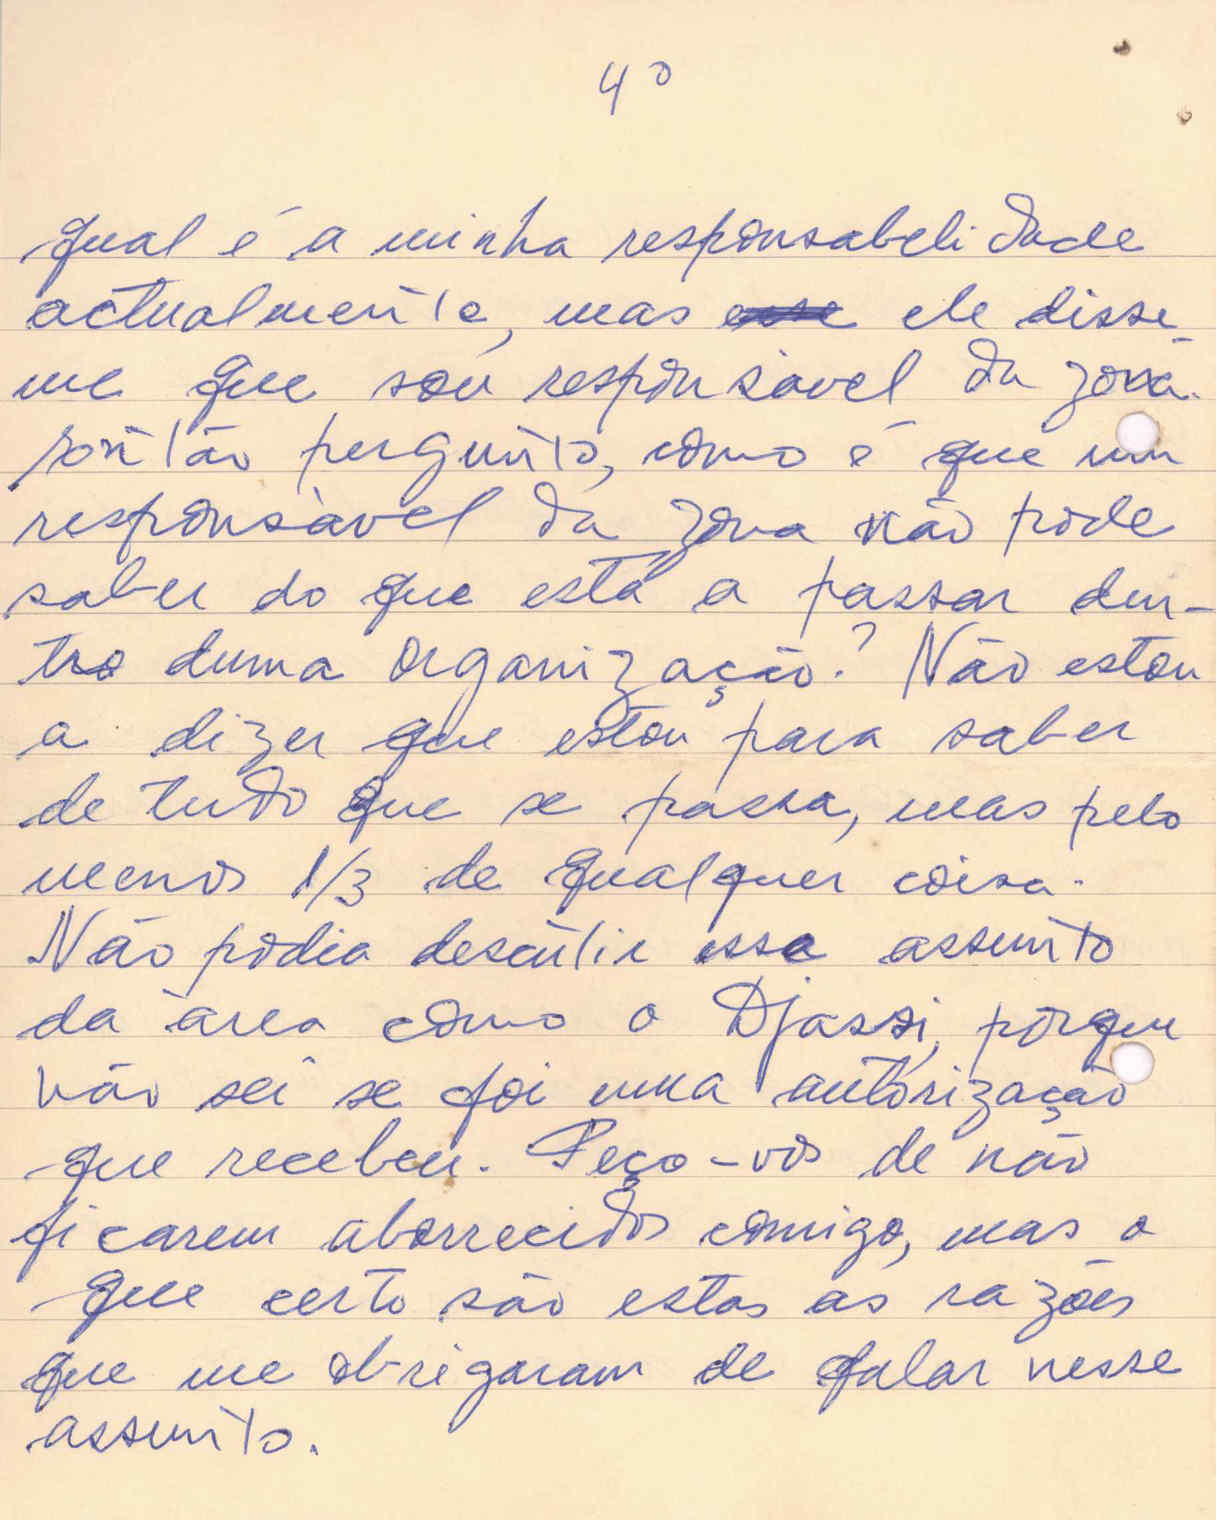 4º
qual é a minha responsabelidade
actualmente, mas ele disse-
me que sou responsàvel da zona.
então pergunto, como é que um
responsàvel da zona não pode
saber do que està a passar den-
tro duma organização? Não estou
a dizer que estou para saber
de tudo que se passa, mas pelo
menos 1/3 de qualquer coisa.
Não podia descutir esse assunto
da àrea como o Djassi, porque
não sei se foi uma autorização
que recebeu. Peço-vos de não
ficarem aborrecidos comigo, mas o
que certo são estas as razões
que me obrigaram de falar nesse
assunto.